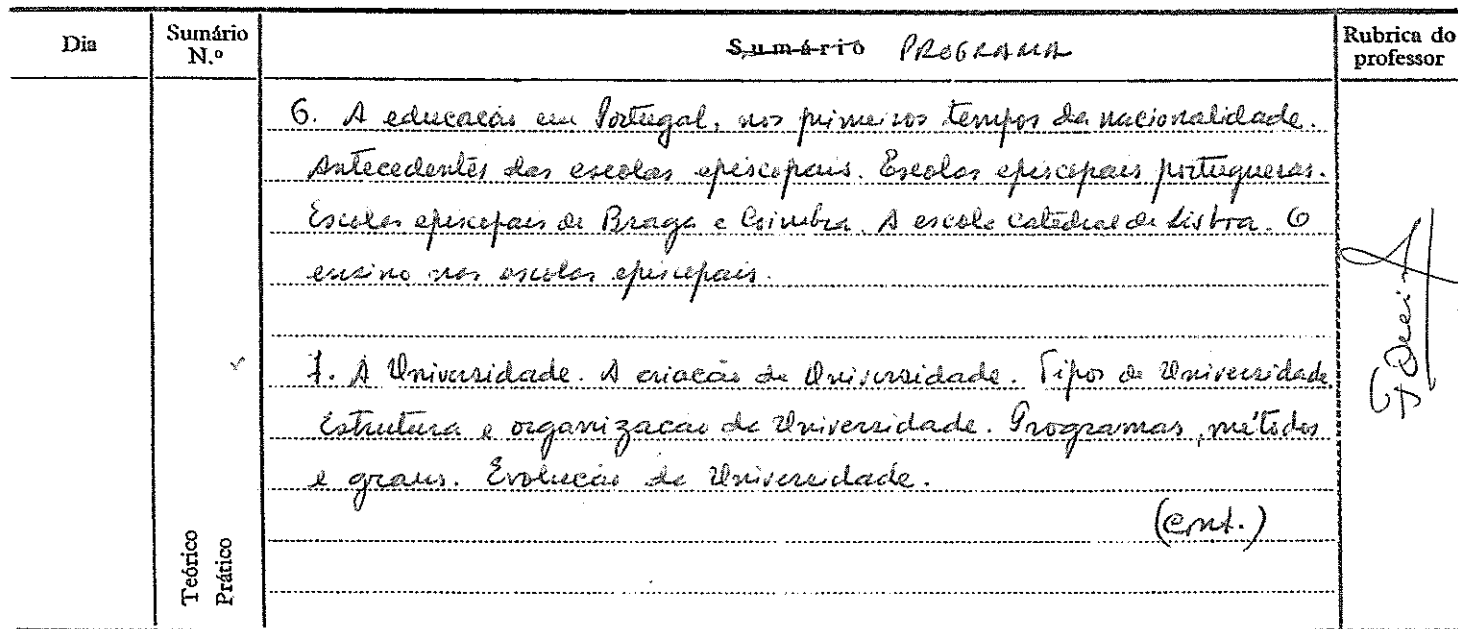 Dia
Sumário N.º
Sumário PROGRAMA
Rubrica do professor
6. A educação em Portugal, nos primeiros tempos da nacionalidade.
Antecedentes das escolas episcopais. Escolas episcopais portuguesas.
Escolas episcopais de Braga e Coimbra. A escola catedral de Lisboa. O
ensino nas escolas episcopais.
7. A Universidade. A criação da Universidade. Tipos de Universidade.
Estrutura e organização da Universidade. Programas, métodos
e graus. Evolução da Universidade.
(cont.)
Teórico
Prático